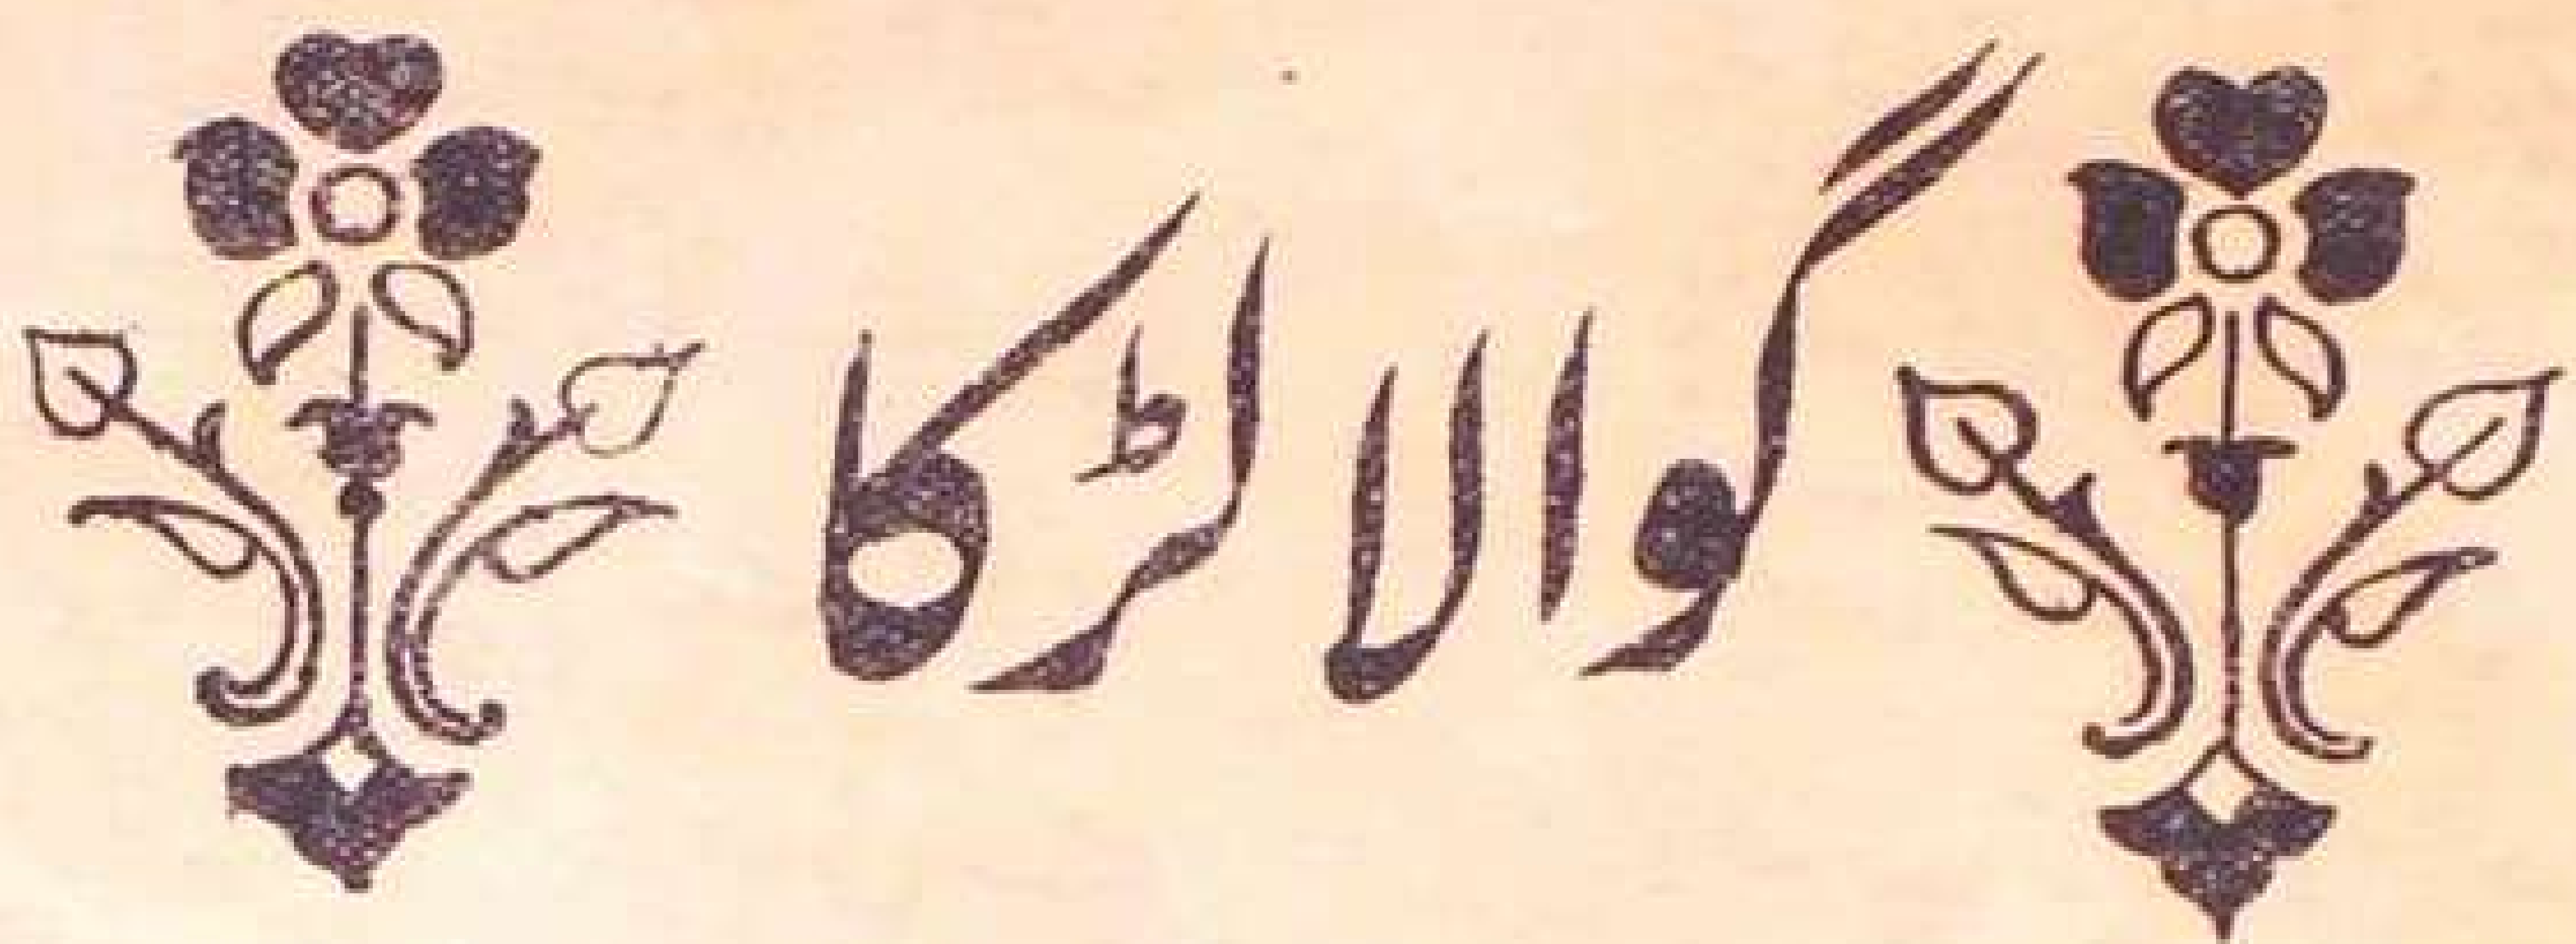 گوالا لڑکا